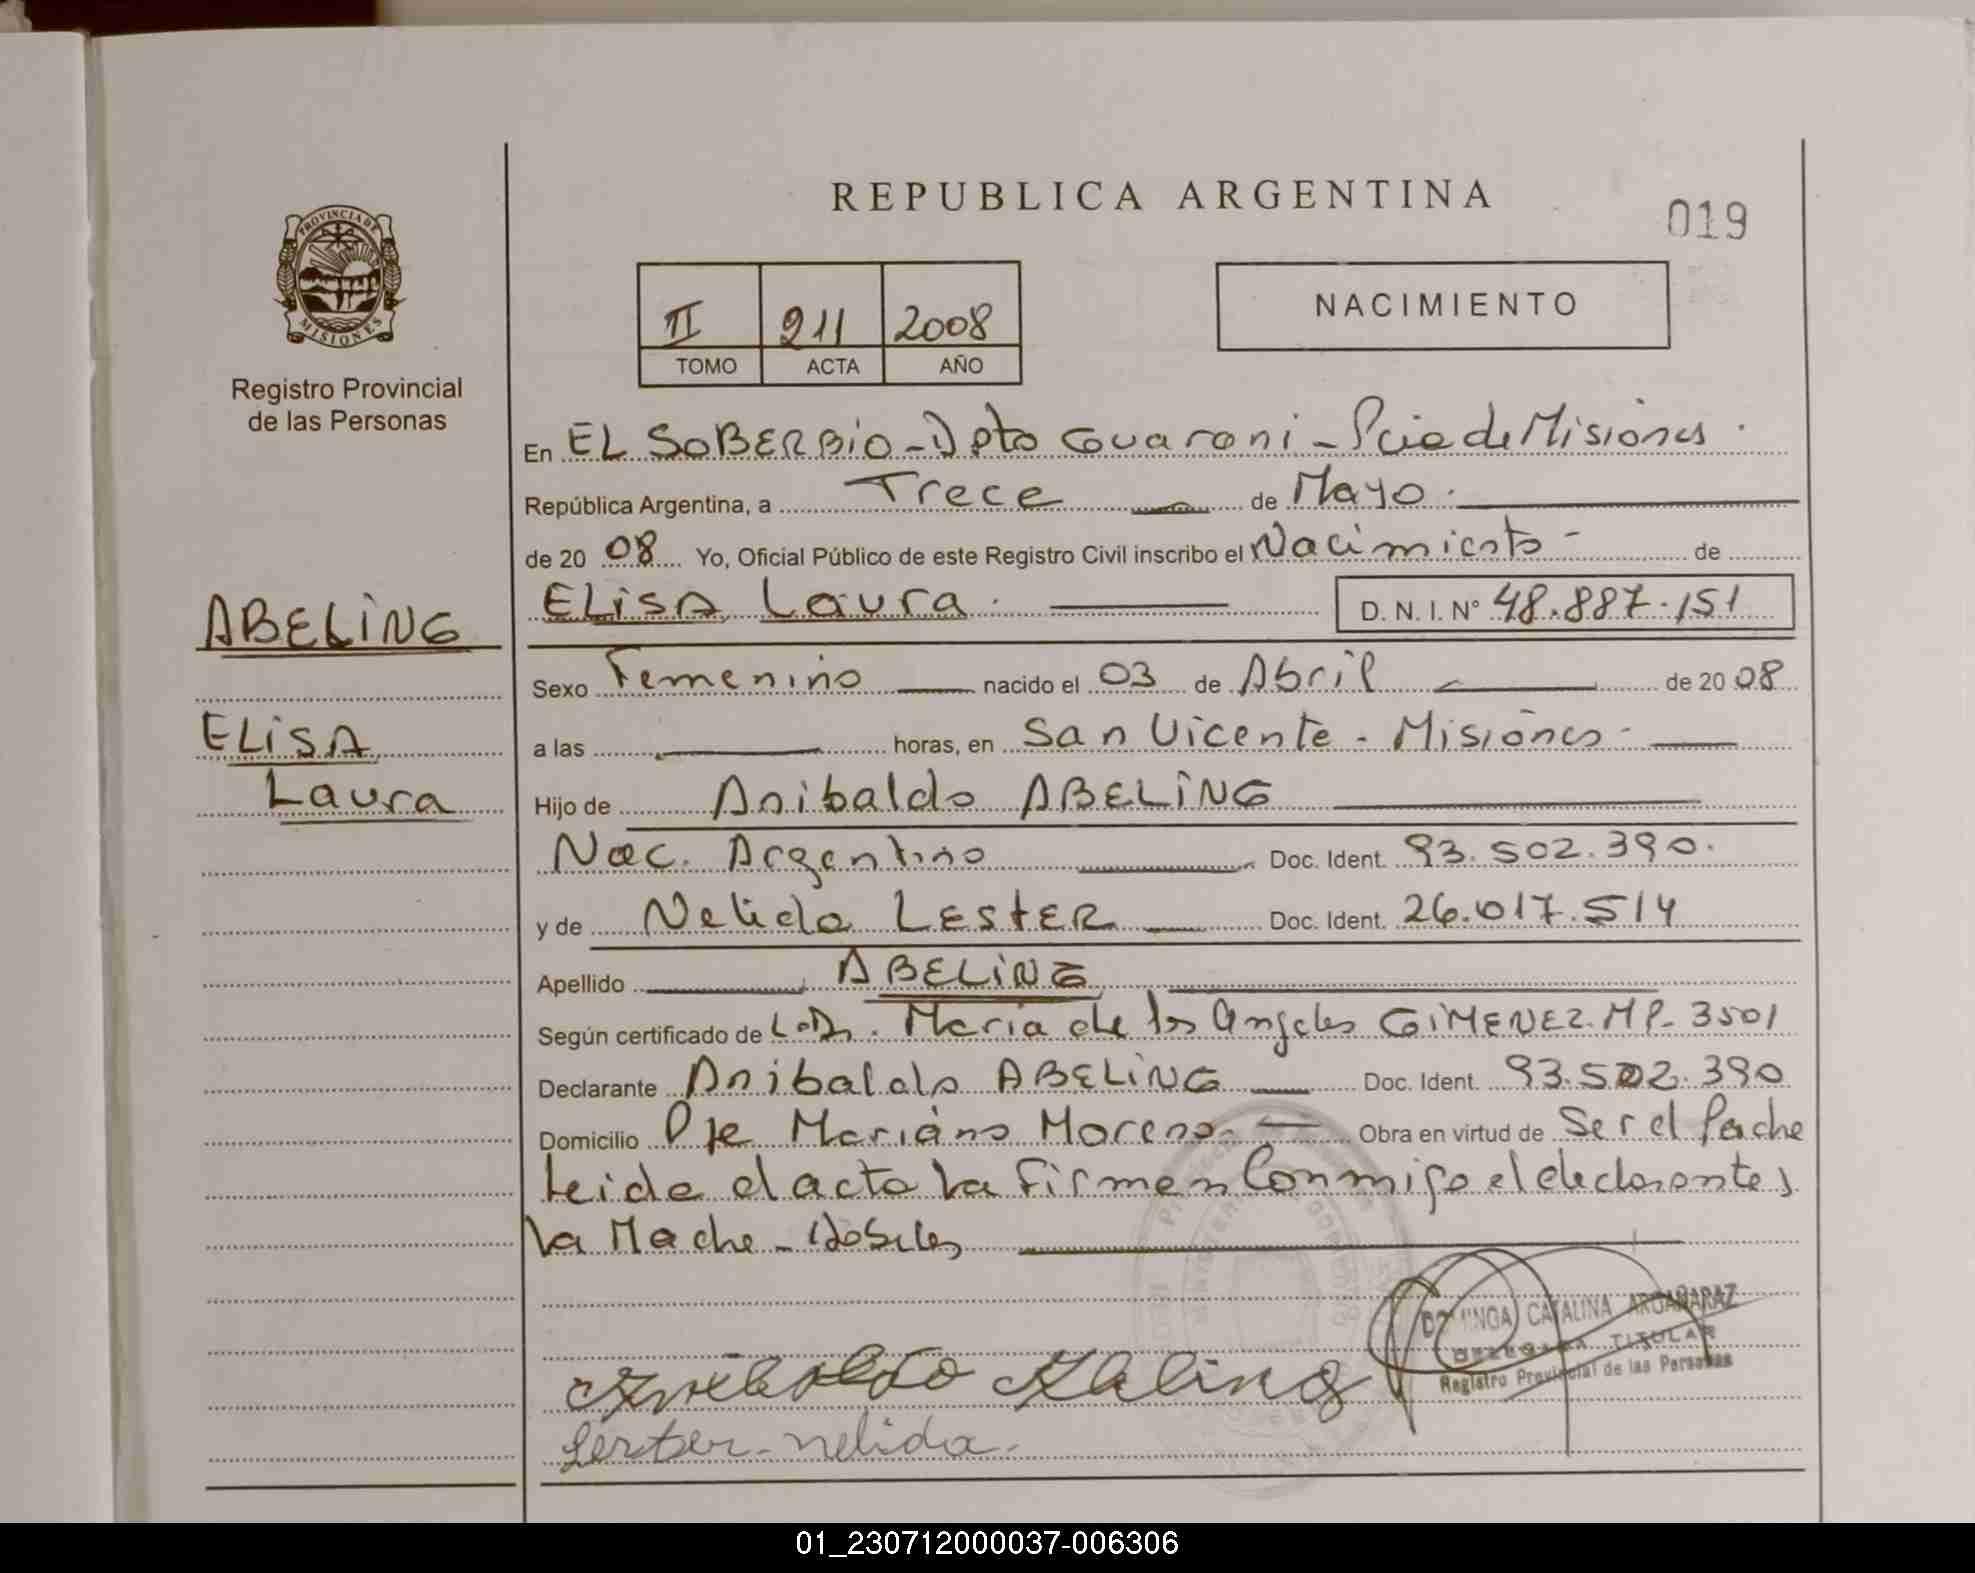 REPUBLICA ARGENTINA
019
PROVINCIA DE
MISIONES
Registro Provincial
de las Personas
II 211 2008
TOMO ACTA AÑO
NACIMIENTO
En EL SOBERBIO - Dpto Guarani - Pcia de Misiones.
República Argentina, a Trece de Mayo.
de 20 08 Yo, Oficial Público de este Registro Civil inscribo el Nacimiento - de
ABELING
ELISA Laura. D. N. I. Nº 48.887.151
Sexo Femenino nacido el 03 de Abril de 20 08
ELISA
a las horas, en San Vicente - Misiones -
Laura
Hijo de Anibaldo ABELING
Nac. Argentino Doc. Ident. 93.502.390.
y de Nelida LESTER Doc. Ident. 26.017.514
Apellido ABELING
Según certificado de Maria de los Angeles GIMENEZ MP. 3501
Declarante Anibaldo ABELING Doc. Ident. 93.502.390
Domicilio Pje Mariano Moreno - Obra en virtud de Ser el Padre
Leida el acta la Firman Conmigo el declarante y
la Madre -
DOMINGA CATALINA ARGAÑARAZ
DELEGADA TITULAR
Registro Provincial de las Personas
Anibaldo Abeling
Lester - nelida.
01_230712000037-006306